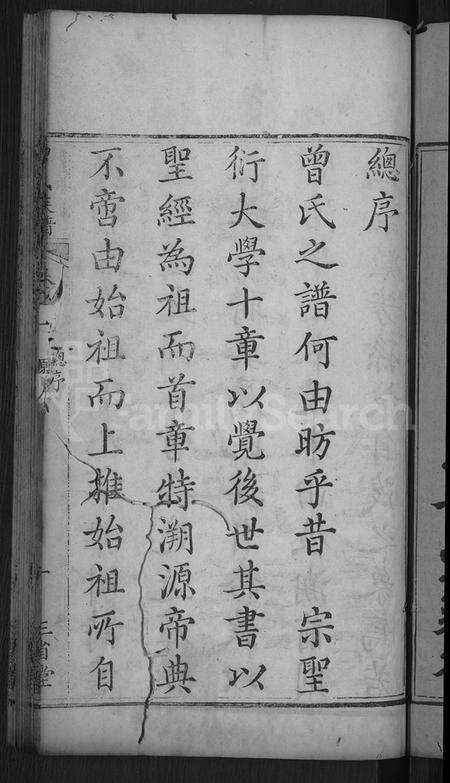 總序
曾氏之譜何由昉乎昔 宗聖
衍大學十章以覺後世其書以
聖經為祖而首章特溯源帝典
不啻由始祖而上推始祖所自
總序
FamilySearch